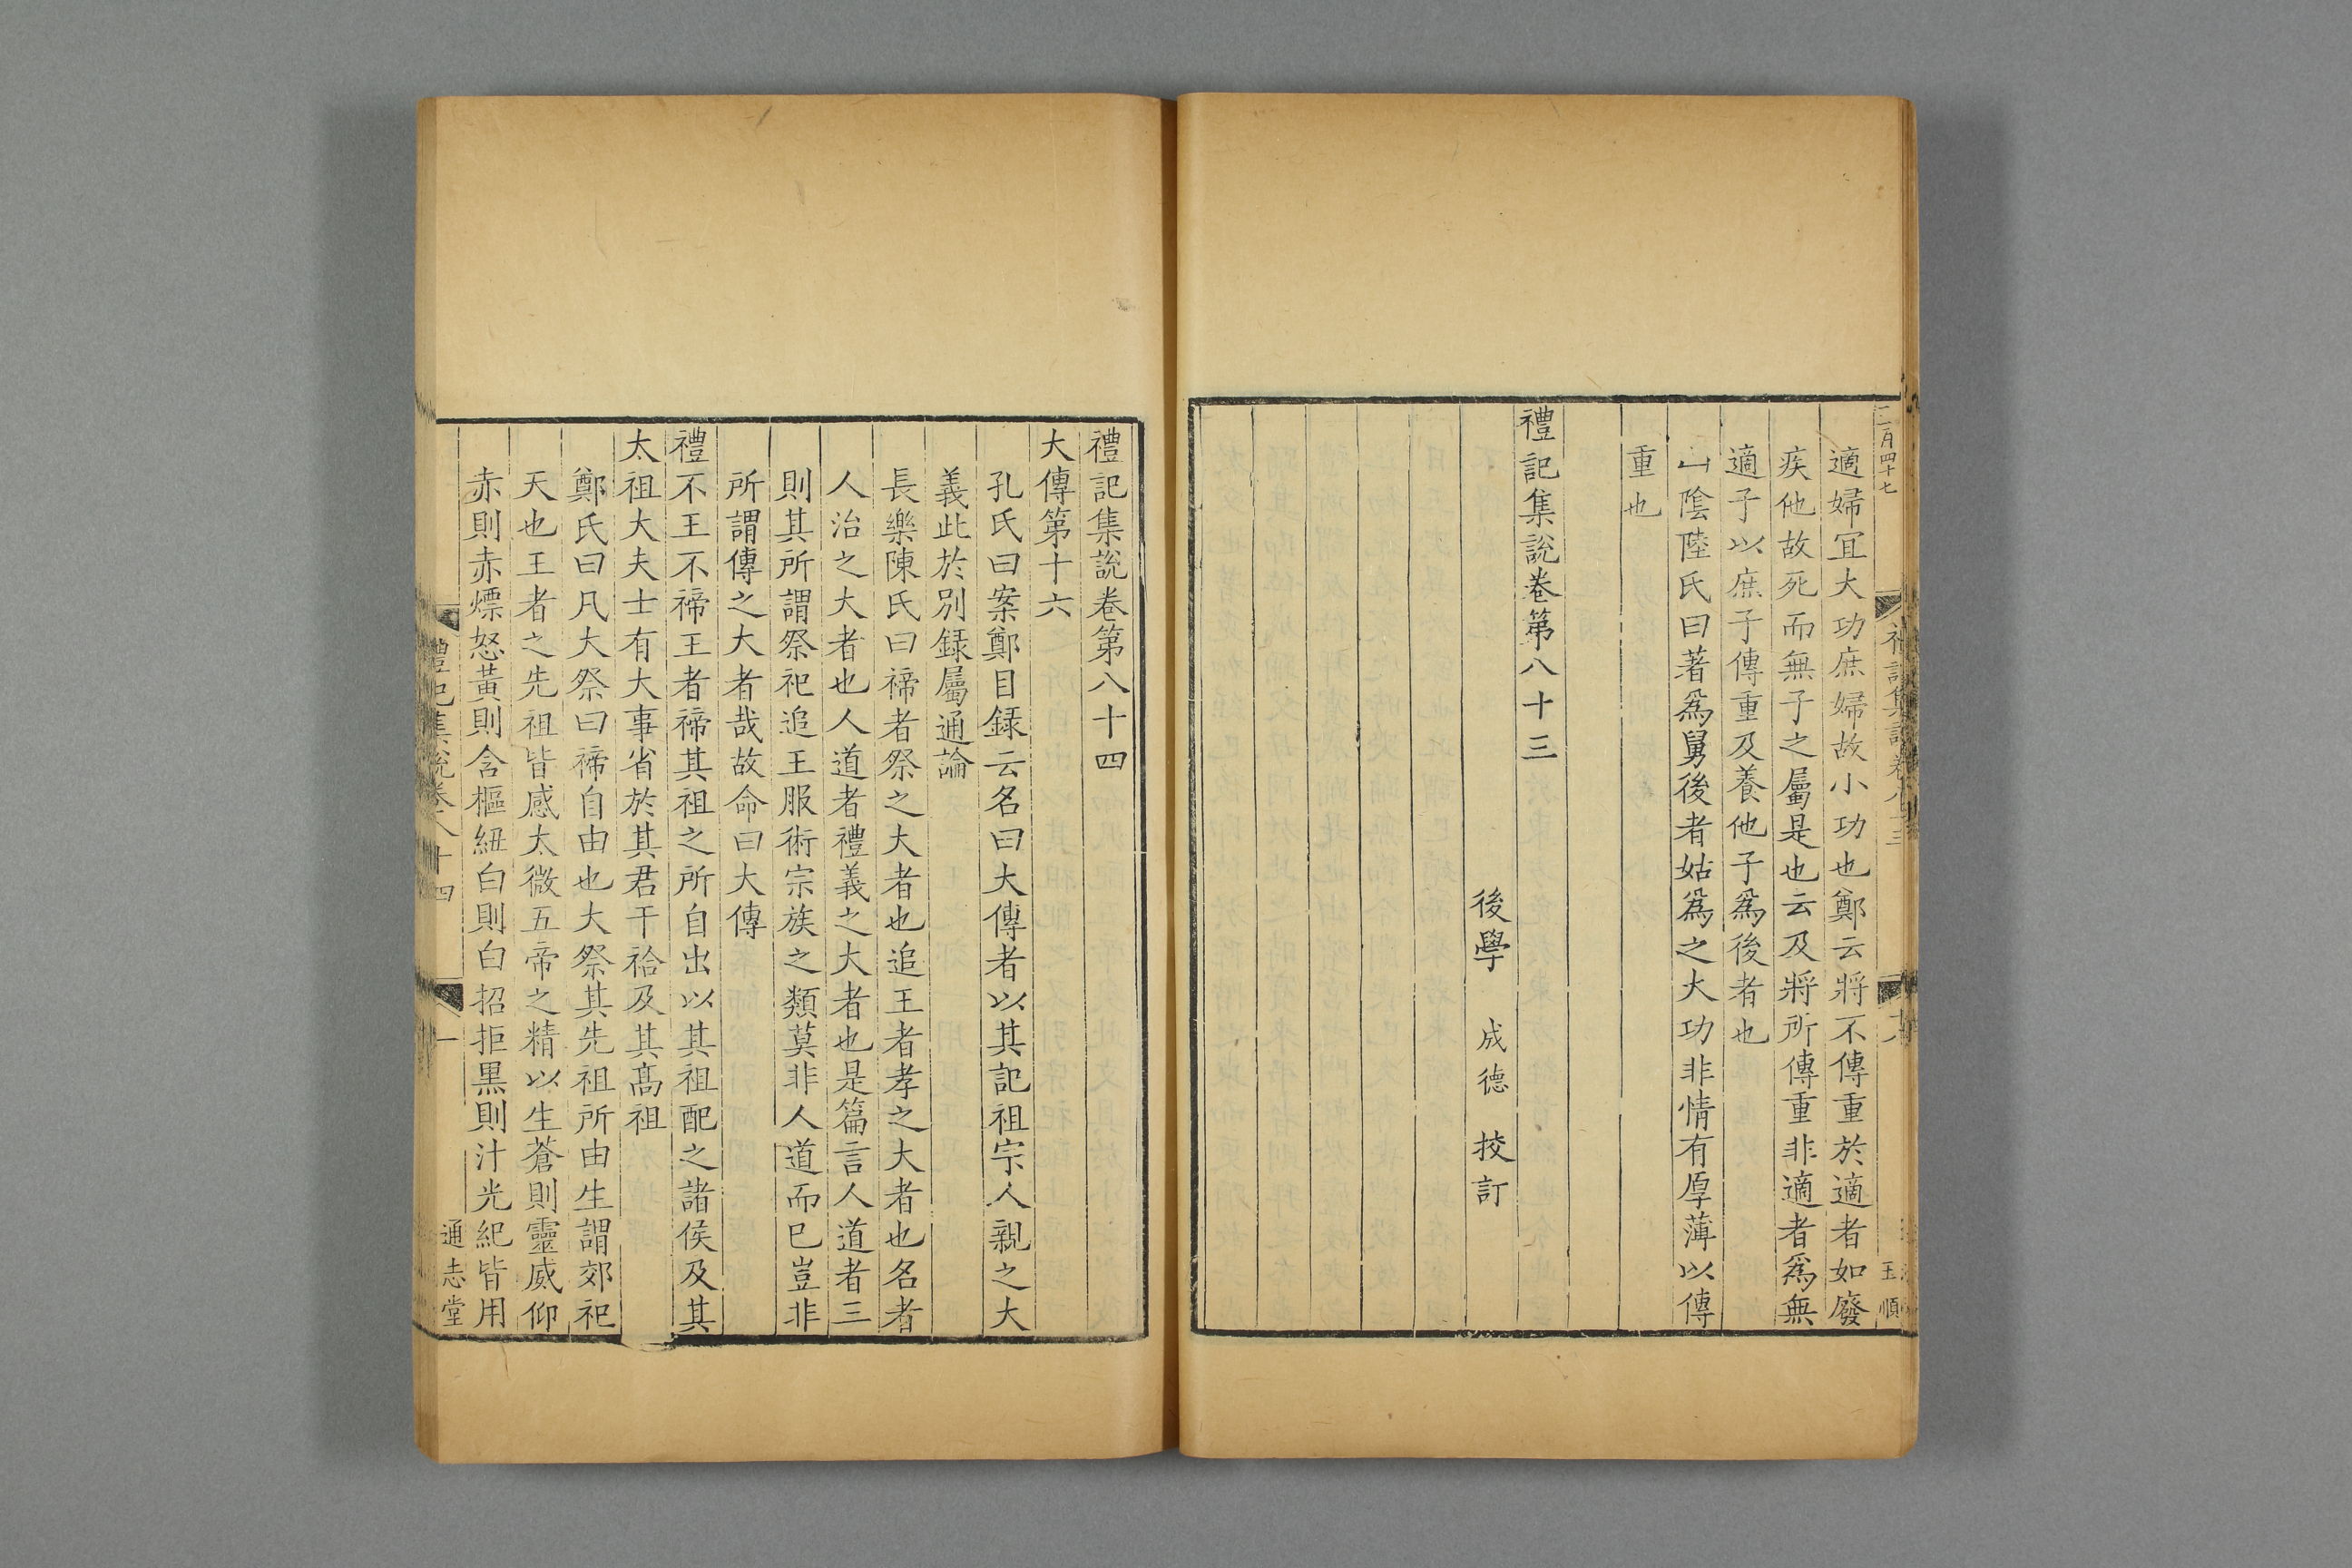 二百四十七
適婦宜大功庶婦故小功也鄭云將不傳重於適者如廢
疾他故死而無子之屬是也云及將所傳重非適者爲無
適子以庶子傳重及養他子爲後者也
山陰陸氏曰著爲舅後者姑爲之大功非情有厚薄以傳
重也
禮記集說卷第八十三
後學 成德 挍訂
禮記集說卷第八十四
大傳第十六
孔氏曰案鄭目録云名曰大傳者以其記祖宗人親之大
義此於別録屬通論
長樂陳氏曰禘者祭之大者也追王者孝之大者也名者
人治之大者也人道者禮義之大者也是篇言人道者三
則其所謂祭祀追王服術宗族之類莫非人道而已豈非
所謂傳之大者哉故命曰大傳
禮不王不禘王者禘其祖之所自出以其祖配之諸侯及其
太祖大夫士有大事省於其君干祫及其髙祖
鄭氏曰凡大祭曰禘自由也大祭其先祖所由生謂郊祀
天也王者之先祖皆感太微五帝之精以生蒼則靈威仰
赤則赤熛怒黃則含樞紐白則白招拒黒則汁光紀皆用
禮記集說卷八十四
一
通志堂